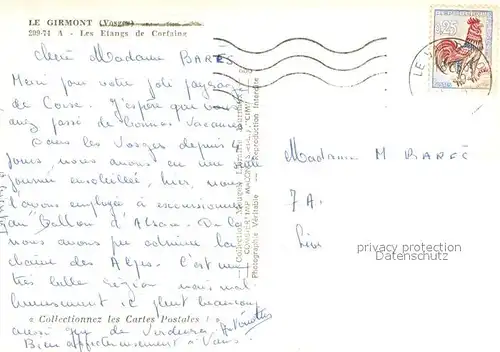 LE GIRMONT (Vosges)
209-74 A - Les Etangs de Corfaing
0,25
LE
Chère Madame BARÈS
Merci pour votre joli paysage
de Corse. J'espère que vous
avez passé de bonnes vacances
Dans les Vosges depuis
jours, nous avons eu une seule
journée ensoleillée, hier, nous
l'avons employée à excursionner
au "Ballon d'Alsace. De là
nous avons pu admirer la
chaîne des Alpes. C'est une
très belle région mais mal-
heureusement il pleut beaucoup
« Collectionnez les Cartes Postales ! »
aussi que de verdure.
Bien affectueusement à Vous.
Photographie Véritable — Reproduction Interdite
Madame M BARÈS
7 A.
privacy protection
Datenschutz